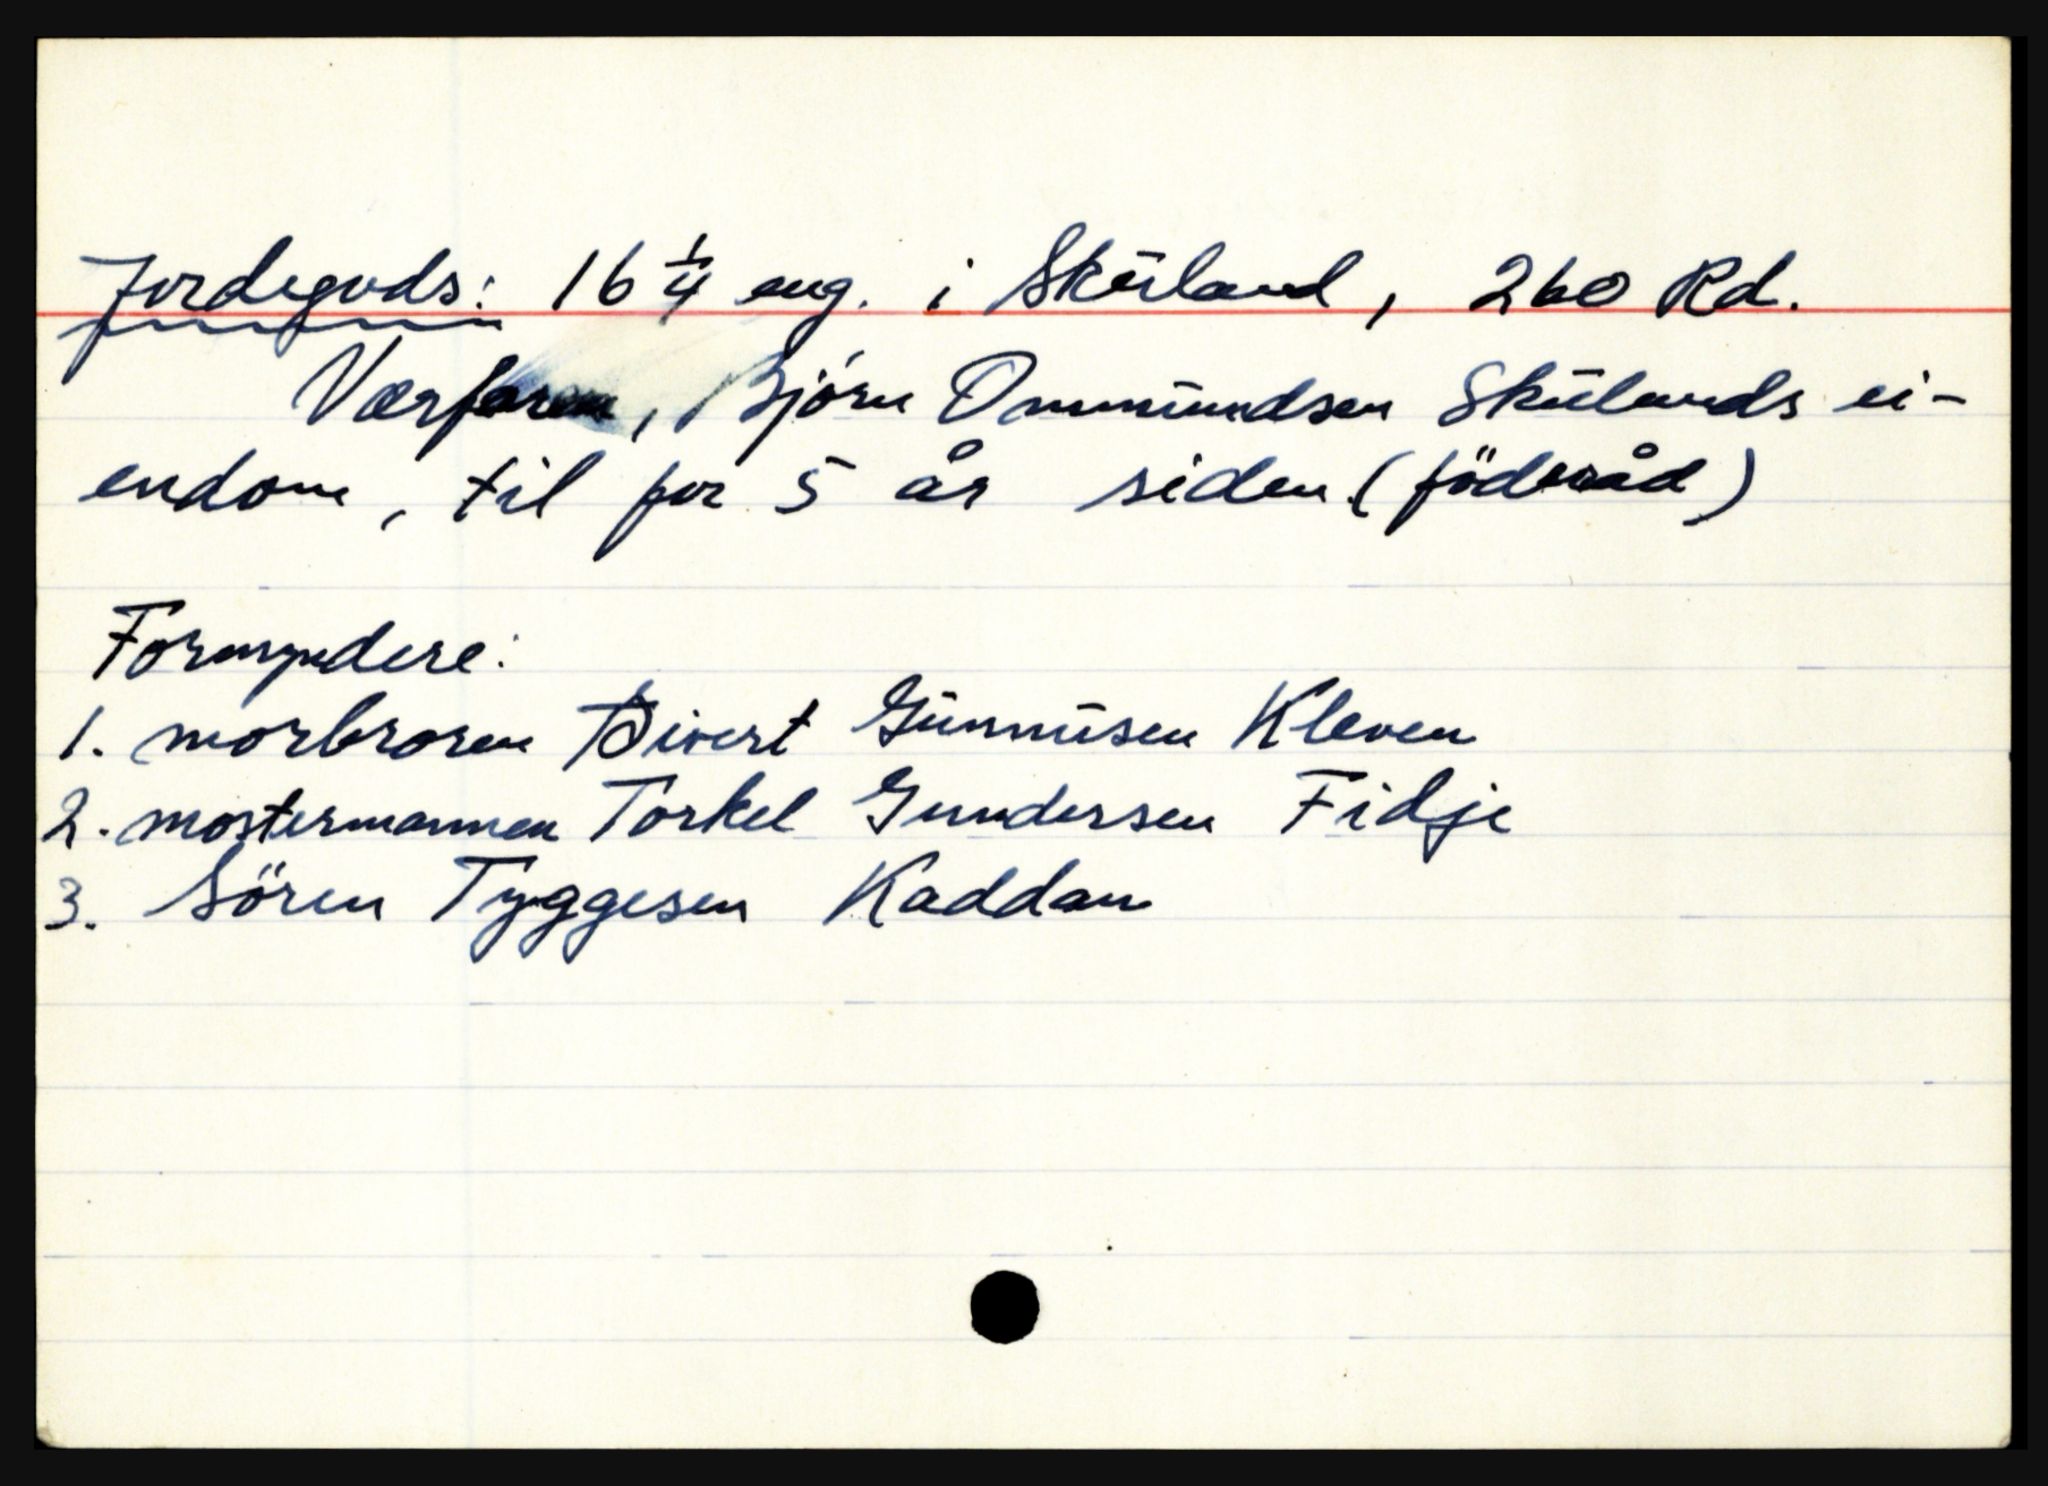 Jordegods: 16 1/4 eng. i Skūland, 260 Rd.
Værfaren, Bjørn Ommūndsen Skūlands ei-
endom, til for 5 år siden (föderåd)
Formyndere:
1. morbroren Sivert Gūnnūsen Kleven
2. mostermannen Torkel Gundersen Fidje
3. Sören Tyggesen Kaddan